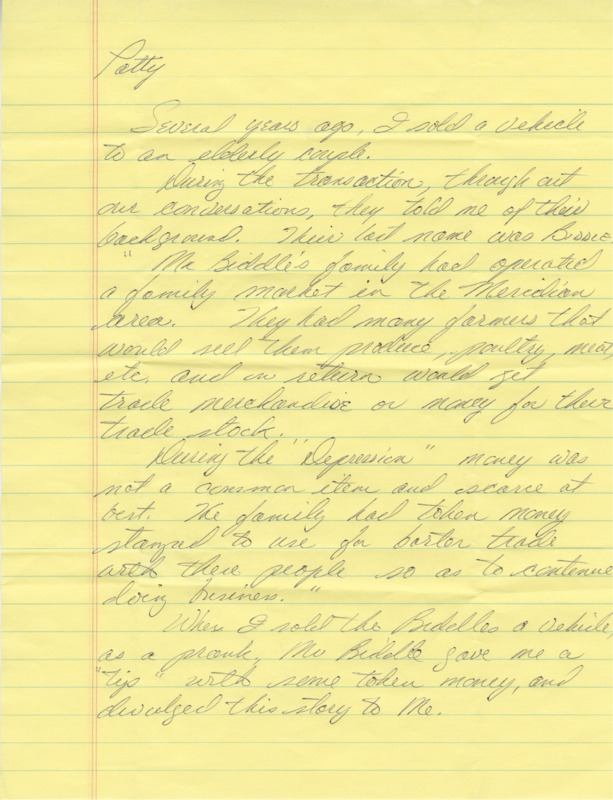 Patty
Several years ago, I sold a vehicle
to an elderly couple.
During the transaction, through out
our conversations, they told me of their
background. Their last name was BIDDLE
"Mr Biddle's family had operated
a family market in the Meridian
area. They had many farmers that
would sell them produce, poultry, meat,
etc. and in return would get
trade merchandise or money for their
trade stock.
During the "Depression" money was
not a common item and scarce at
best. The family had token money
stamped to use for barter trade
with these people so as to continue
doing business."
When I sold the Biddles a vehicle,
as a prank, Mr Biddle gave me a
"tip" with some token money, and
divulged this story to Me.